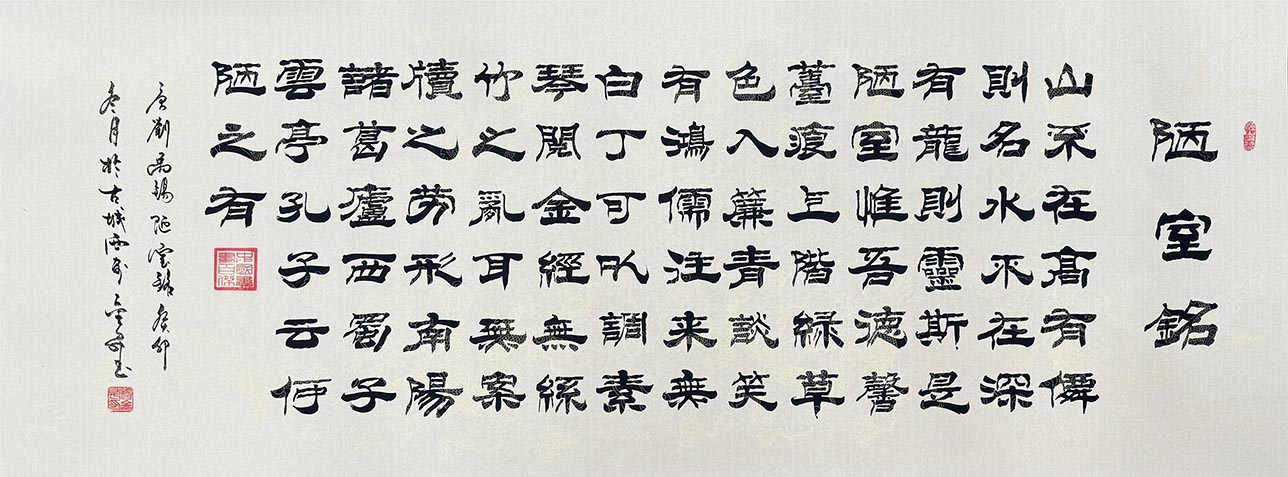 陋室銘
山不在高有僊
則名水不在深
有龍則靈斯是
陋室惟吾德馨
薹痕上階緑草
色入簾青談笑
有鴻儒往来無
白丁可以調素
琴閱金經無絲
竹之亂耳無案
牘之勞形南陽
諸葛廬西蜀子
雲亭孔子云何
陋之有
唐劉禹錫陋室銘癸卯
冬月於古城